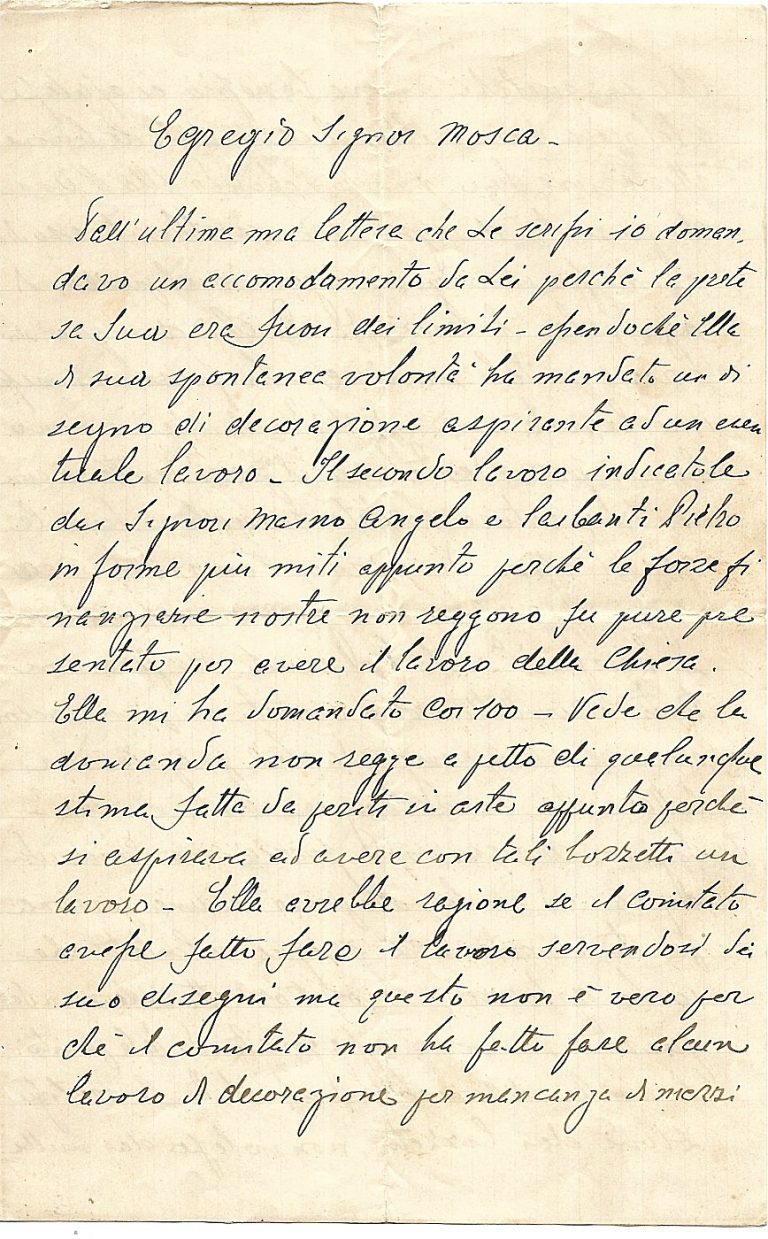 Egregio Signor Mosca -
Dall'ultima mia lettera che Le scrissi io doman-
davo un accomodamento da Lei perchè la prete
sa Sua era fuori dei limiti - essendochè Ella
di sua spontanea volontà ha mandato un di
segno di decorazione aspirante ad un even
tuale lavoro - Il secondo lavoro indicatole
dai Signori Marno Angelo e Pietro
in forme più miti appunto perchè le forze fi
nanziarie nostre non reggono fu pure pre
sentato per avere il lavoro della Chiesa.
Ella mi ha domandato Cor 100 - Vede che la
domanda non regge a petto di qualunque
stima fatta da periti in arte appunto perchè
si aspirava ad avere con tali bozzetti un
lavoro - Ella avrebbe ragione se il Comitato
avesse fatto fare il lavoro servendosi dei
suo disegni ma questo non è vero per
chè il comitato non ha fatto fare alcun
lavoro di decorazione per mancanza di mezzi